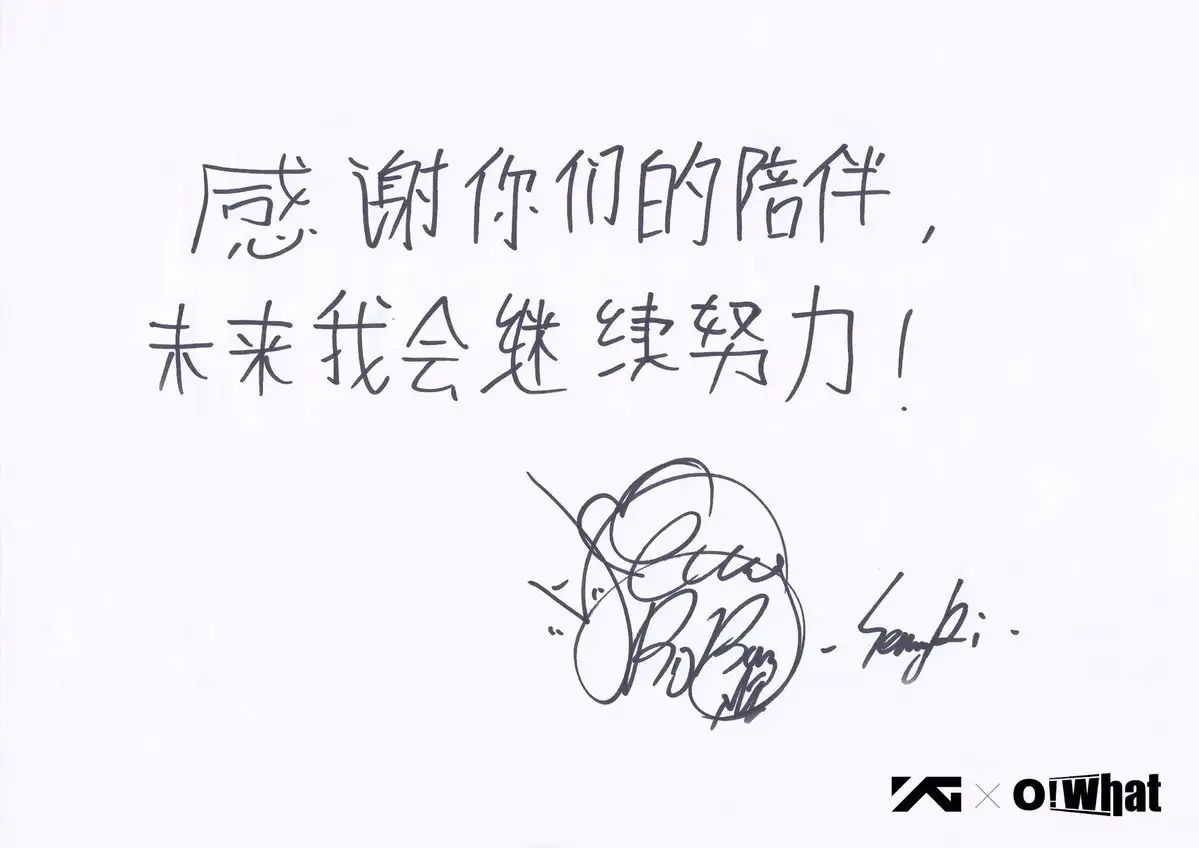 感谢你们的陪伴,
未来我会继续努力!
BIGBANG
- SeungRi -
YG × O!What